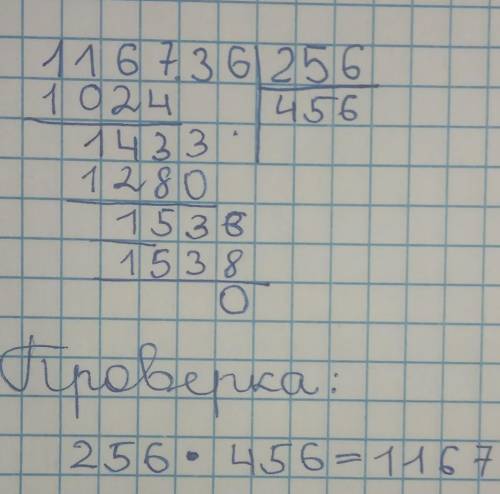 116736 256
1024 456
1433
1280
1536
1538
0
Проверка:
256 · 456 = 1167